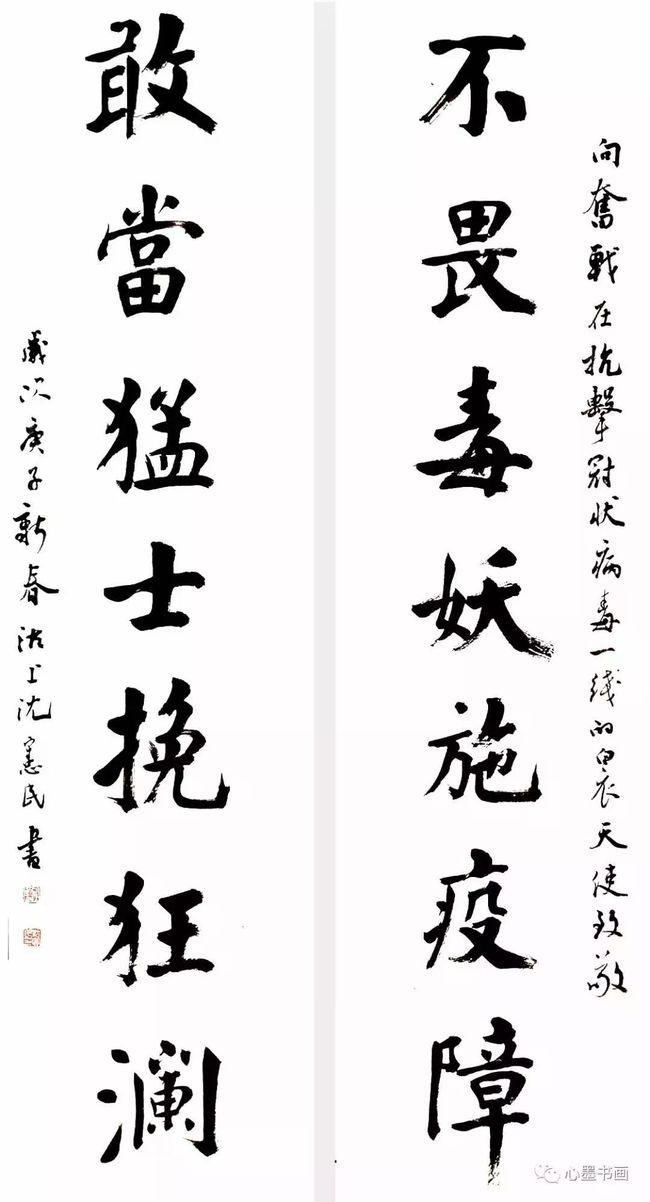 向奮戰在抗擊冠状病毒一线的白衣天使致敬
不畏毒妖施疫障
敢當猛士挽狂瀾
歲次庚子新春沽上沈憲民書
心墨书画